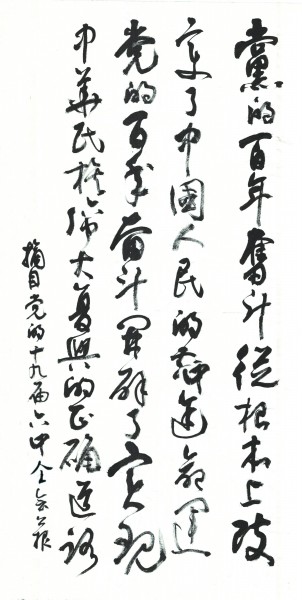 黨的百年奮斗從根本上改
变了中國人民的前途命運
党的百年奋斗開辟了实现
中華民族偉大复興的正確道路
摘自党的十九届六中全会公报